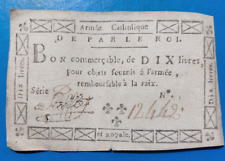 Armée Catholique
DE PAR LE ROI.
BON commerçable, de DIX livres,
pour objets fournis à l'armée,
remboursable à la paix.
Série
N°.
12442
et Royale.
Dix livres.
Dix livres.